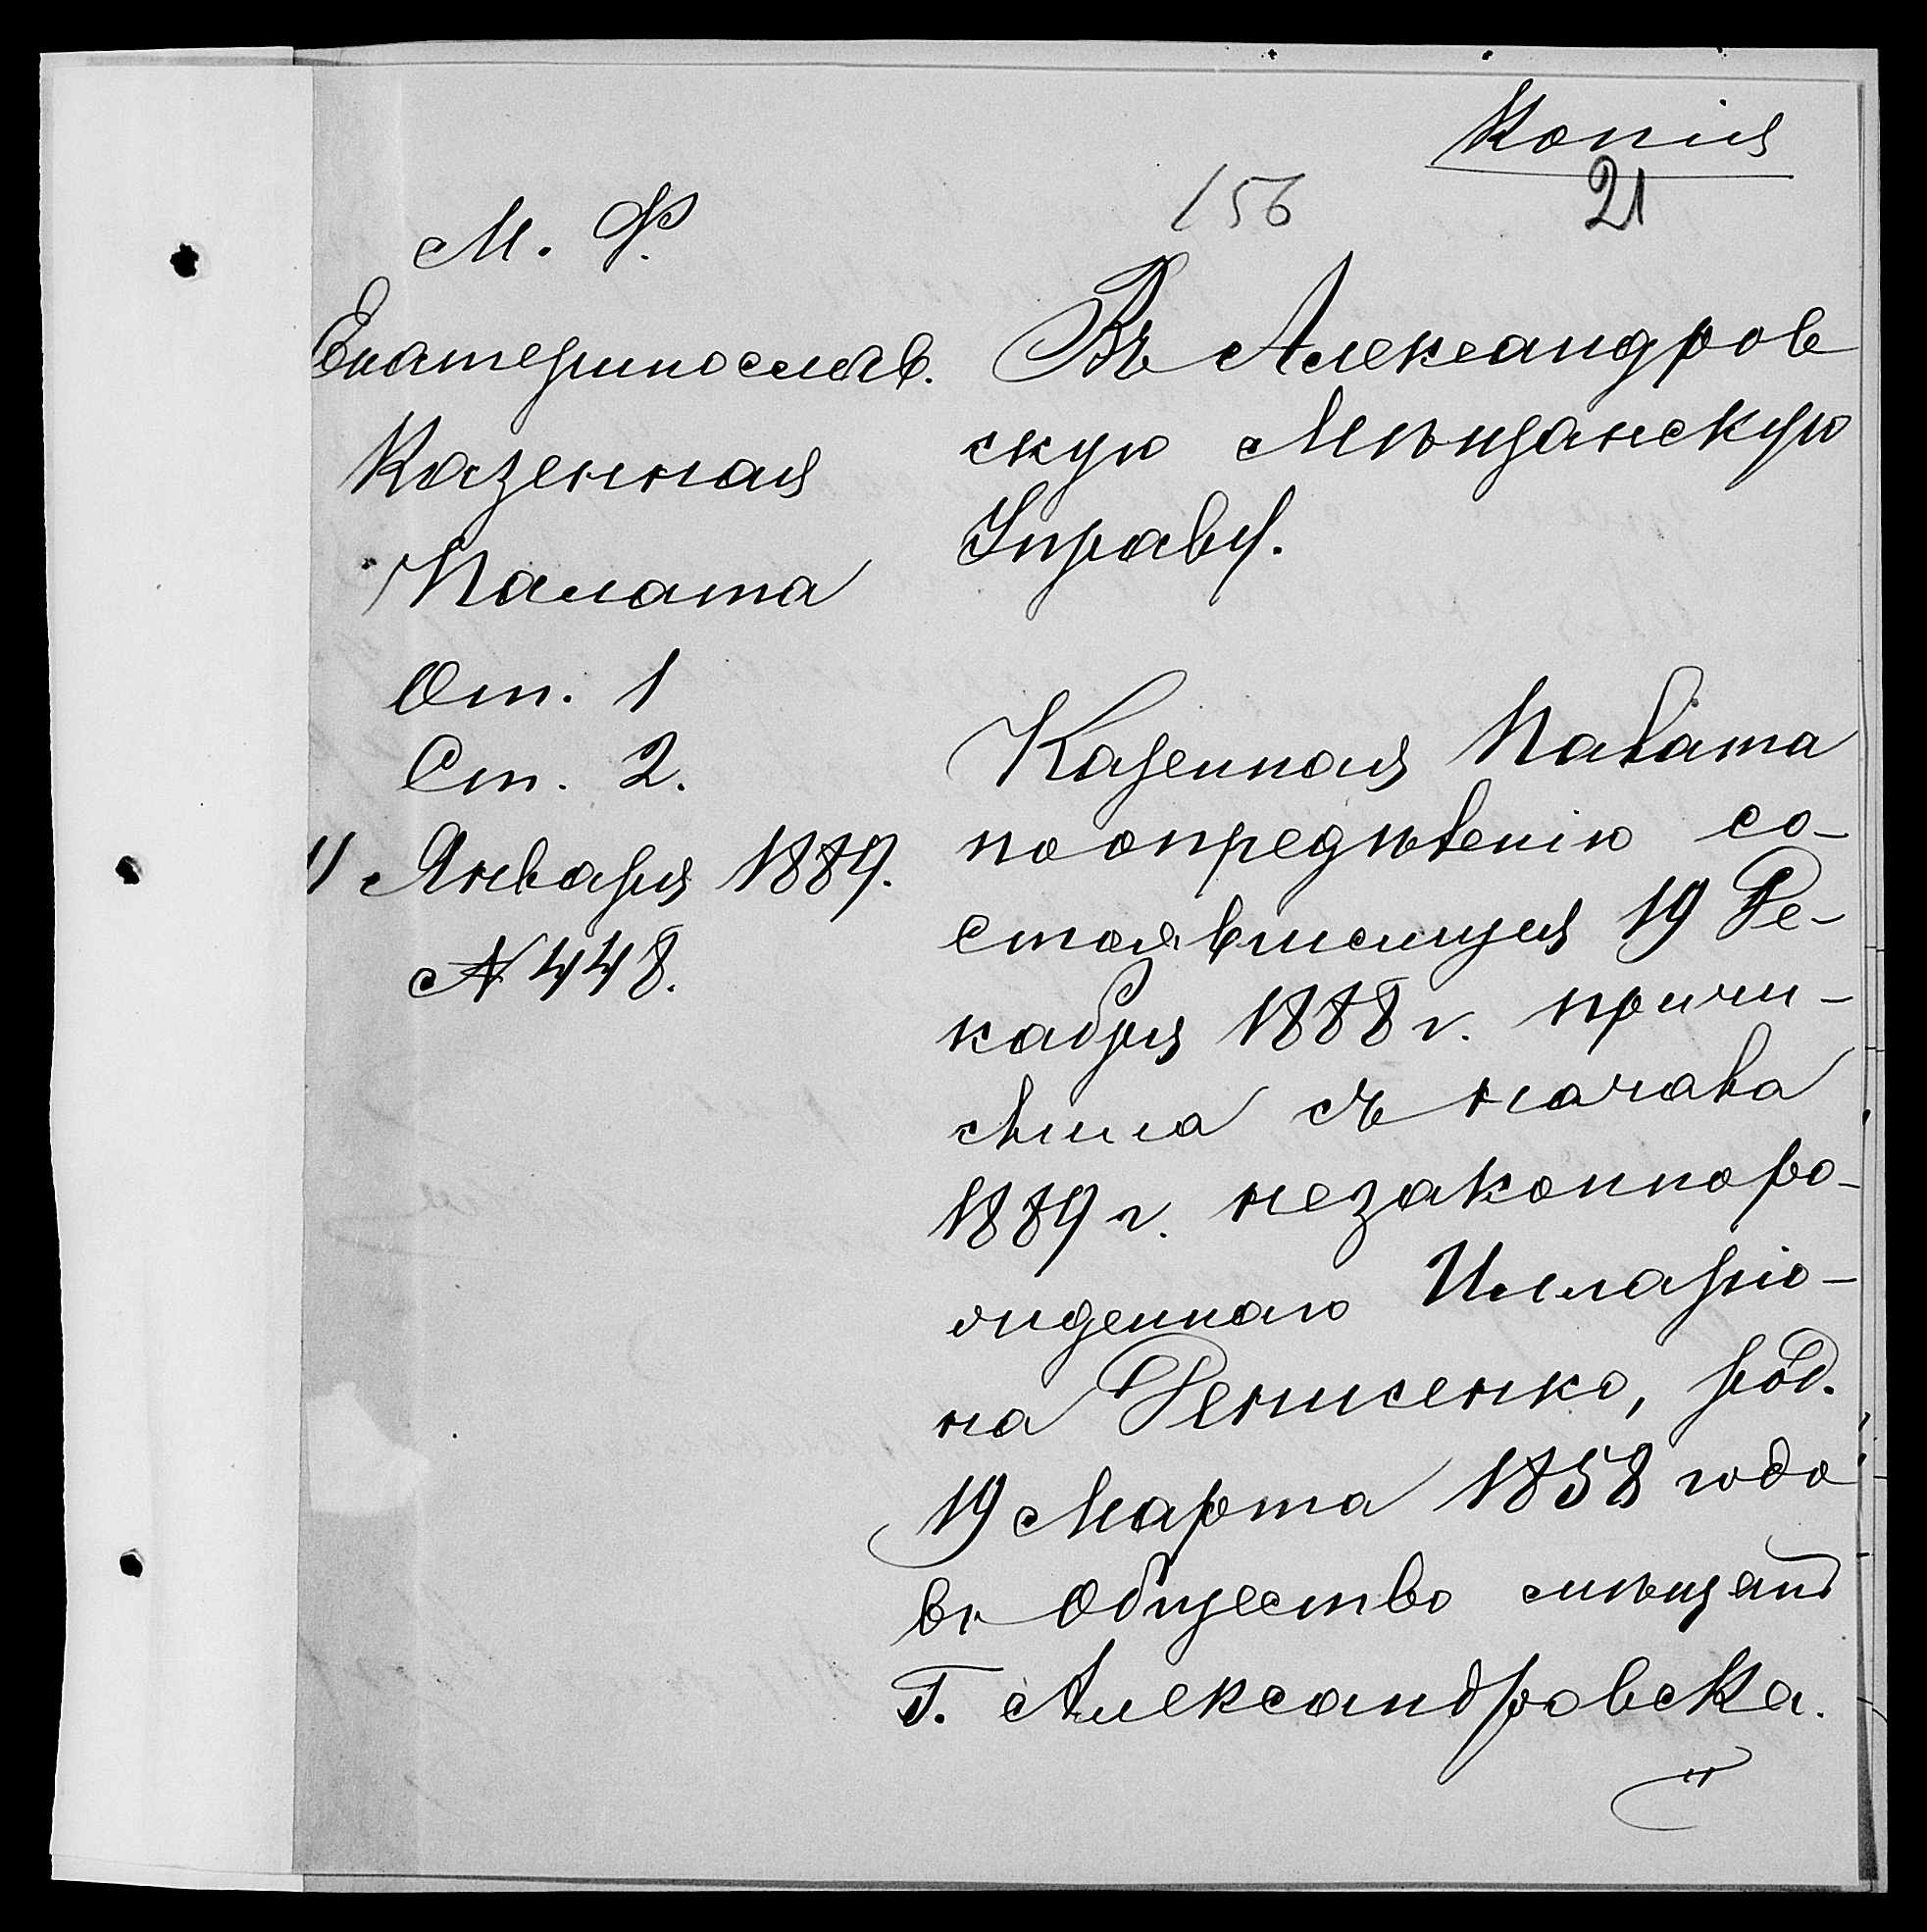 Копія
156
21
М. Ф.
Екатериносл.
Казенная
Палата
От. 1
Ст. 2.
11 Января 1889.
№ 448.
Въ Александров
скую Мѣщанскую
Управу.
Казенная Палата
по опредѣленію со-
стоявшемуся 19 Де-
кабря 1888 г. причи-
слила съ начала
1889 г. незаконноро-
жденнаго Илларіо-
на Денисенко, род.
19 Марта 1858 года
въ общество мѣщанъ
Г. Александровска.